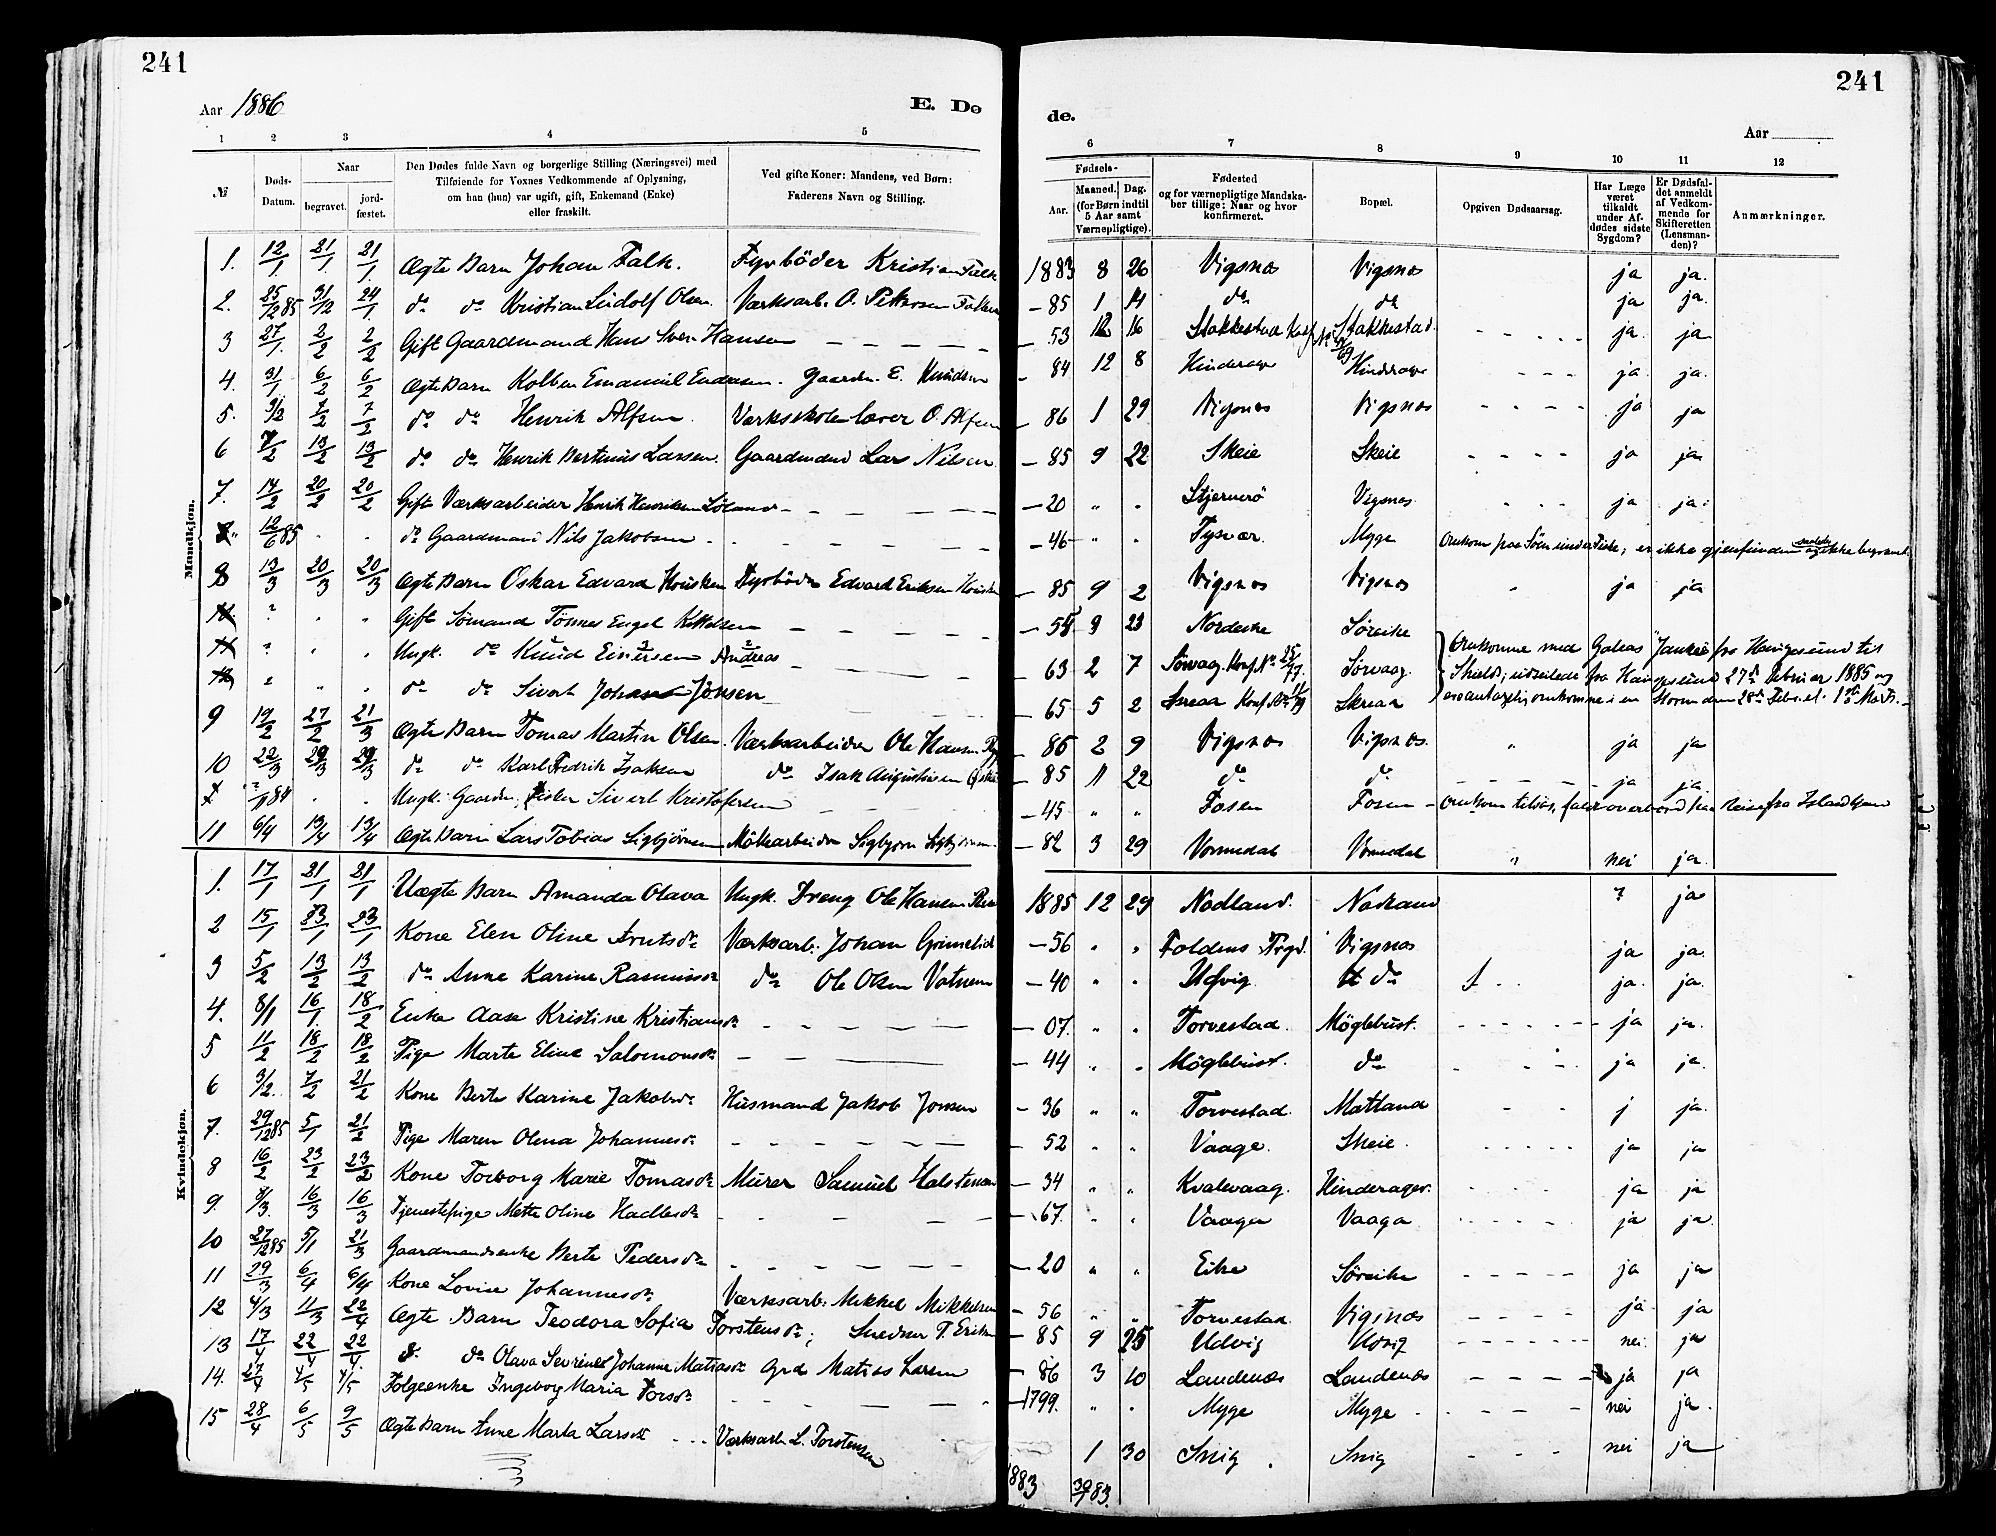 241
241
Aar 1886
E. Dø
de.
Aar
1 2 3 4 5
6 7 8 9 10 11 12
№
Døds-Datum.
Naar
begravet.
jord-fæstet.
Den Dødes fulde Navn og borgerlige Stilling (Næringsvei) med
Tilføiende for Voxnes Vedkommende af Oplysning,
om han (hun) var ugift, gift, Enkemand (Enke)
eller fraskilt.
Ved gifte Koner: Mandens, ved Børn:
Faderens Navn og Stilling.
Fødsels-
Aar.
Maaned.
Dag.
(for Børn indtil
5 Aar samt
Værnepligtige).
Fødested
og for værnepligtige Mandska-
ber tillige: Naar og hvor
konfirmeret.
Bopæl.
Opgiven Dødsaarsag.
Har Læge
været
tilkaldt
under Af-
dødes sidste
Sygdom?
Er Dødsfal-
det anmeldt
af Vedkom-
mende for
Skifteretten
(Lensman-
den)?
Anmærkninger.
Mandkjøn.
1. 12/1 21/1 21/1 Ægte Barn Johan Falk. Fyrböder Kristian Falk 1883 8 26 Vigsnæs Vigsnæs ja ja.
2. 25/12 85 31/12 24/1 do do Kristian Lüdolf Olsen Værksarb. O. Pettersen - 85 1 14 do do ja ja.
3 27/1 2/2 2/2 Gift Gaardmand Hans Sven Hansen - 53 12 16 Stakkestad Stakkestad ja ja
4. 31/1 6/2 6/2 Ægte Barn Kolben Emanuel Gaardm. E. Knudsen - 84 12 8 Hinderage Hinderage ja ja.
5. 7/2 7/2 do do Henrik Alfsen Værksskolelærer O. Alfsen - 86 1 29 Vigsnæs Vigsnæs ja ja
6 7/2 13/2 13/2 do do Henrik Bertinus Larsen Gaardmand Lars Nilsen - 85 9 22 Skeie Skeie ja ja
7. 14/2 20/2 20/2 Gift Værksarbeider Henrik Henriksen - 20 " " Stjernerö Vigsnæs ja ja
12/6 85 do Gaardmand Nils Jakobsen - 46 " " Tysvær Myge Omkom paa Söen under Fiske; er ikke gjenfunden og ikke begravet
8 13/3 20/3 20/3 Ægte Barn Oskar Edvard Fyrböder Edvard Eriksen - 85 9 2 Vigsnæs Vigsnæs " ja ja
? " " Gift Sömand Tönnes Engel Kittelsen 3 23 Nordeike Söreike
? " " Ungk. do Knud Andreas - 63 2 7 Sörvaag Konf. No 25/77. Sörvaag
" " do do Sivert Johan Jönsen - 65 5 2 Skreaa
Omkomne med Galeas fra Haugesund til
Shields; udseilede fra Haugesund 27de Februar 1885 og
omkomne i en Storm den 28de Febr. el. 1ste Marts.
9 19/2 27/2 21/3 Ægte Barn Tomas Martin Olsen. Værksarbeider Ole Hansen - 86 2 9 Vigsnæs Vigsnæs " ja ja
10 22/3 29/3 29/3 do do Karl Fredrik Isaksen do Isak Augustinsen - 85 11 22 do do ja ja
84 " " Ungk. Gaardm. Fisker Sivert Kristofersen - 45 " " Fosen Fosen
11 6/4 13/4 13/4 Ægte Barn Lars Tobias Sigbjörnsen Möllearbeider Sigbjörn - 82 3 29 Vormedal Vormedal " nei ja.
Kvindekjøn.
1. 17/1 21/1 21/1 Uægte Barn Amanda Olava Ungk. Dreng Ole Hansen 1885 12 29 Nodland Nodland ? ja
2 15/1 23/1 23/1 Kone Elen Oline Værksarb. Johan Grinnelid - 56 " " Foldens Prgd. Vigsnæs ja ja.
3 5/2 13/2 13/2 do Anne Karine Rasmusdr do Ole Olsen Vatnem - 40 " " Udvig do ja. ja.
4. 8/1 16/1. 18/2 Enke Aase Kristine Kristiansdr - 07. " " Torvestad Möglebust. ja ja.
5 11/2 18/2 18/2 Pige Marte Eline Salomonsdr - 44 " " Möglebust. do ja ja.
6 3/2 7/2 21/2 Kone Berte Karine Jakobsdr Husmand Jakob Jonsen - 36 " " Torvestad Matland j ja.
7. 29/12 85 5/1 21/2 Pige Maren Olena Johannesdr - 52 " " Vaage. Skeie. ja ja
8 16/2 23/2 23/2 Kone Torborg Marie Tomasdr Murer Samuel Halstensen - 34 " " Kvalevaag. Hinderager. ja ja
9. 9/3. 16/3 16/3 Tjenestepige Mette Oline Hadlesdr - 67. " " Vaaga Vaaga ja ja.
10 27/12 85 5/1 21/3 Gaardmandsenke Berte Pedersdr - 20 " " Eike Söreike ja ja
11 29/3 6/4 6/4 Kone Lovise Johannesdr Værksarb. Mikkel Mikkelsen - 56 " " Torvestad Vigsnæs ja ja
12 4/3 11/3 22/4 Ægte Barn Teodora Sofia Torstensdr; Snedker T. - 85 9 25 Udvig Udvig nei ja
13 17/4 22/4 22/4. do Olava Severine Johanne Matiasdr Grd Matias Larsen - 86 3 10 Landenæs Landenæs ja ja
14. 27/4 4/5 4/5 Folgeenke Ingeborg Maria - 1799. " " Myge Myge nei ja.
15 28/4 6/5 9/5 Ægte Barn Anne Marta Larsdr Værksarb. L. Torstensen 1883 1 30 Snig Snig nei ja
30/1 83.